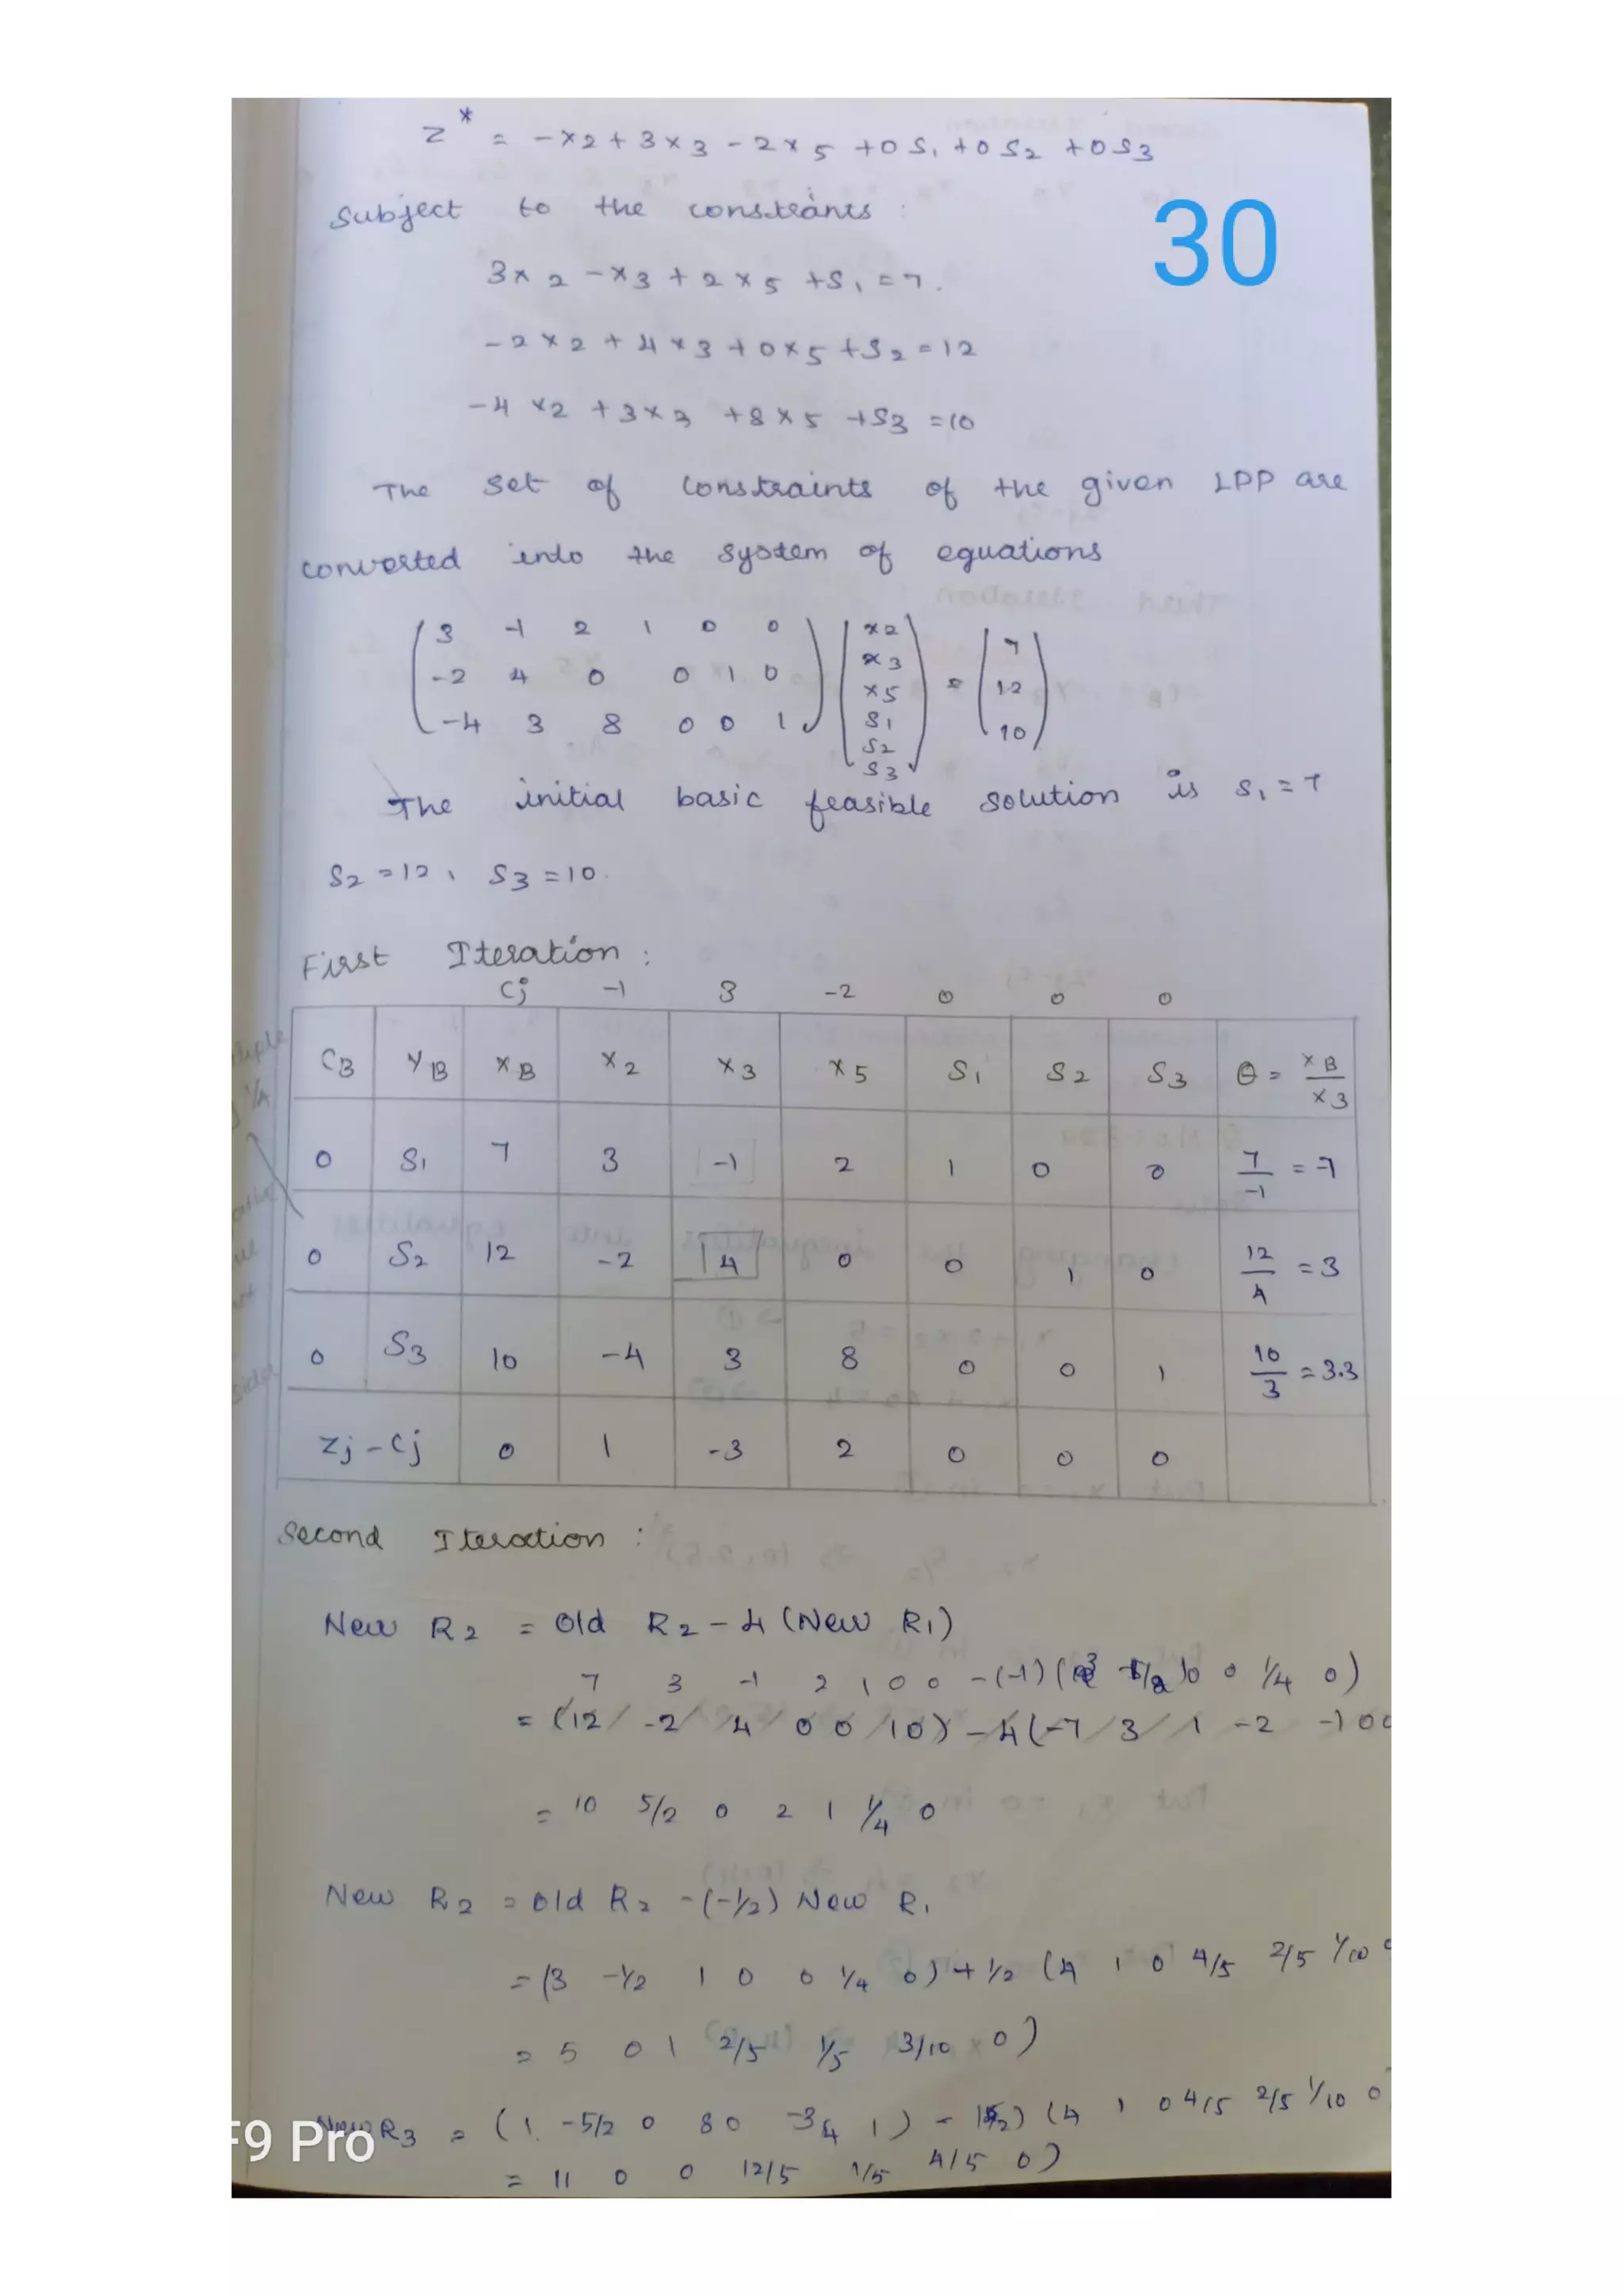 z* = -x2 + 3x3 - 2x5 + 0s1 + 0s2 + 0s3
30
Subject to the constraints :
3x2 - x3 + 2x5 + s1 = 7.
-2x2 + 4x3 + 0x5 + s2 = 12
-4x2 + 3x3 + 8x5 + s3 = 10
The set of constraints of the given LPP are
converted into the system of equations
3 -1 2 1 0 0 x2 7
-2 4 0 0 1 0 x3 = 12
-4 3 8 0 0 1 x5 10
s1
s2
s3
The initial basic feasible solution is s1 = 7
s2 = 12, s3 = 10.
First Iteration :
Cj -1 3 -2 0 0 0
CB YB XB X2 X3 X5 S1 S2 S3 θ = XB/X3
0 S1 7 3 -1 2 1 0 0 7/-1 = -7
0 S2 12 -2 4 0 0 1 0 12/4 = 3
0 S3 10 -4 3 8 0 0 1 10/3 = 3.3
Zj - Cj 0 1 -3 2 0 0 0
Second Iteration :
New R2 = Old R2 - 4 (New R1)
7 3 -1 2 1 0 0 - (-1) ( 3 0 0 1/4 0)
= (12 -2 4 0 0 1 0) - 4(-7 3 1 -2 -1 0 0
= 10 5/2 0 2 1 1/4 0
New R2 = Old R2 - (-1/2) New R1
= (3 -1/2 1 0 0 1/4 0) + 1/2 (4 1 0 4/5 2/5 1/10 0
= 5 0 1 2/5 1/5 3/10 0)
New R3 = (1 -5/2 0 8 0 -3/4 1) - (4 1 0 4/5 2/5 1/10 0
= 11 0 0 12/5 1/5 4/5 0)
F9 Pro